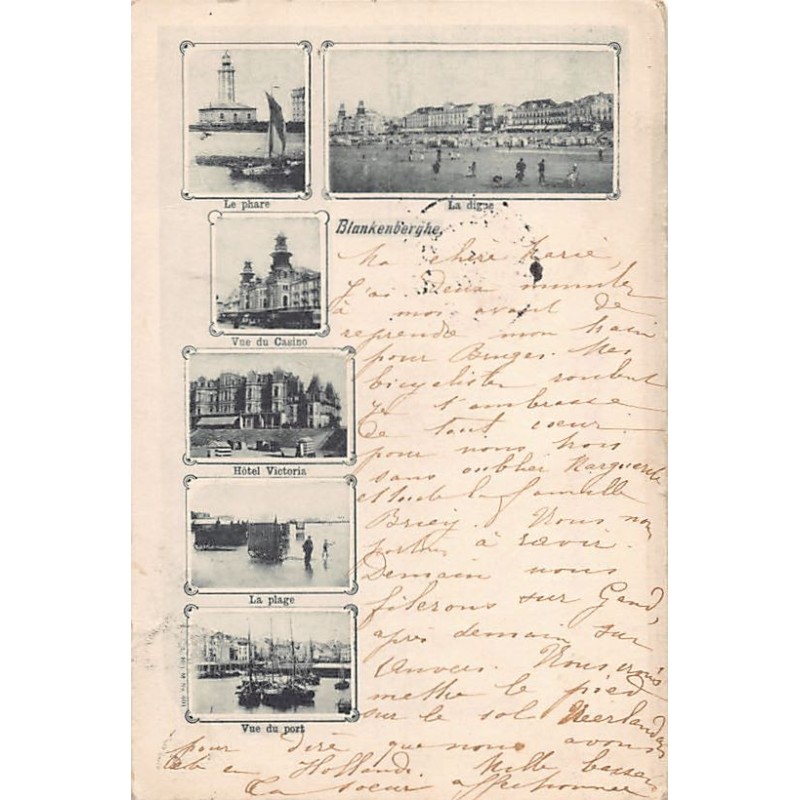 Le phare
La digue
Blankenberghe,
Vue du Casino
Hôtel Victoria
La plage
Vue du port
Ma chère Marie,
J'ai deux minutes
à moi avant de
reprendre mon train
pour Bruges. Mes
bicyclistes roulent
Je t'embrasse
de tout cœur
pour nous trois
sans oublier Marguerite
et toute la famille
Briey. Nous nous
à ravir.
Demain nous
filerons sur Gand,
après demain sur
Anvers. Nous
mettre le pied
sur le sol Neerlandais
pour dire que nous avons
été en Hollande. Mille baisers
Ta soeur affectionnée